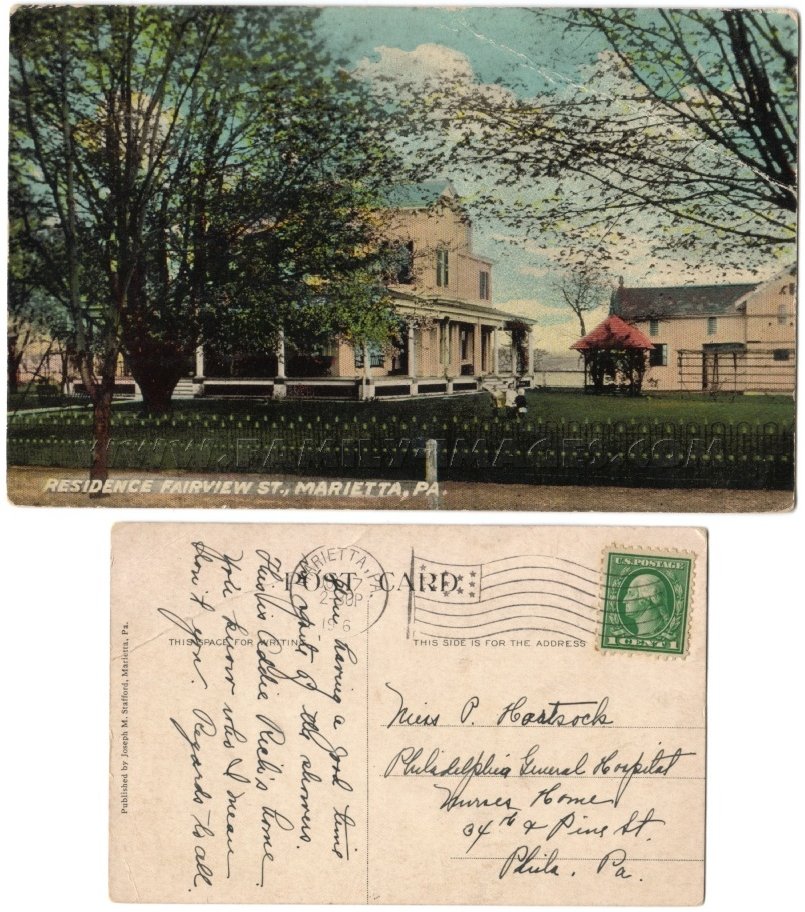 WWW.FAMILY-IMAGES.COM
RESIDENCE FAIRVIEW ST., MARIETTA, PA.
POST CARD
MARIETTA, PA.
2-30P
U.S. POSTAGE
1 CENT 1
THIS SPACE FOR WRITING
THIS SIDE IS FOR THE ADDRESS
Published by Joseph M. Stafford, Marietta, Pa.
Am having a good time
in spite of the showers.
This is Addie Rich's home
You know who I mean
don't you. Regards to all.
Miss P. Hartsock
Philadelphia General Hospital
Nurses Home
34th & Pine St.
Phila. Pa.